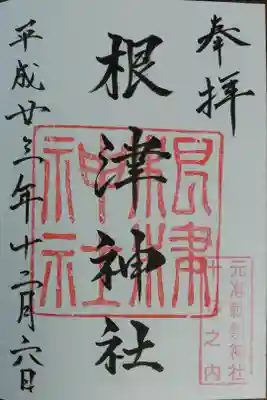 奉拝
元准勅祭神社
十社之内
根津神社
根津
神社
平成廿三年十二月六日